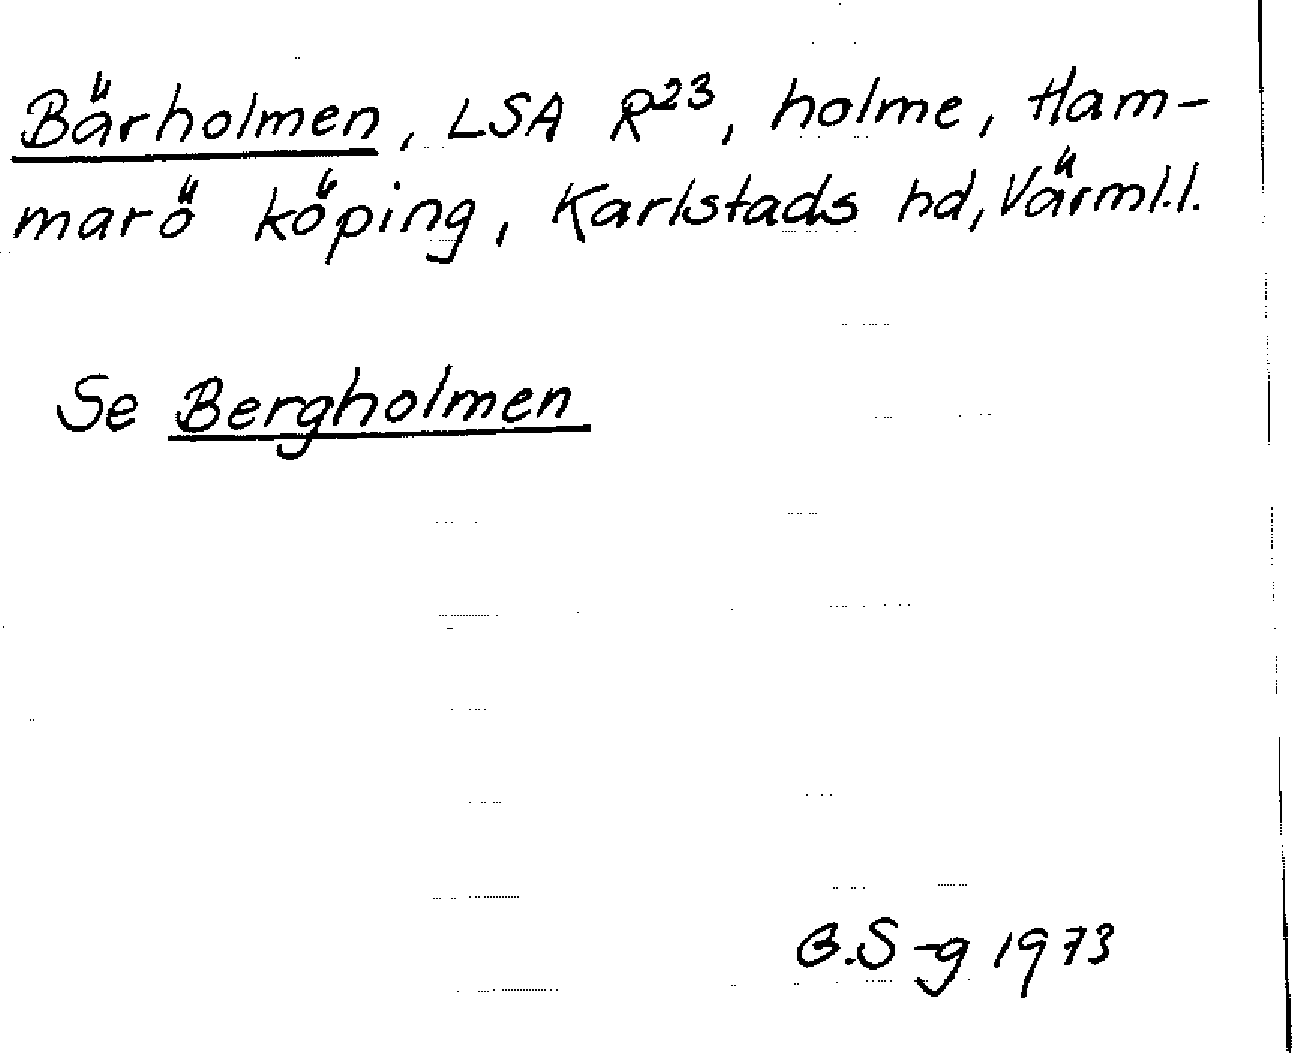 Bärholmen, LSA R23, holme, Ham-
marö köping, Karlstads hd, Värml.l.
Se Bergholmen
B.S-g 1973